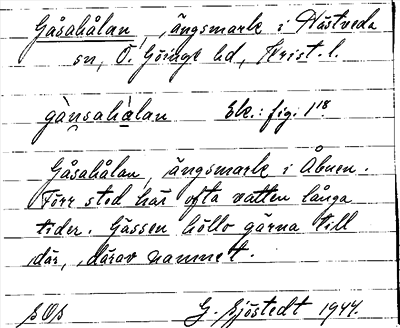 Gåsahålan, ängsmark i Hästveda
sn, Ö. Göinge hd, Krist. l.
gạ̀nsahạlan Ek.: fig. 1 18.
Gåsahålan, ängsmark i Åbuen.
Förr stod här ofta vatten långa
tider. Gässen höllo gärna till
där, därav namnet.
G. Sjöstedt 1944.